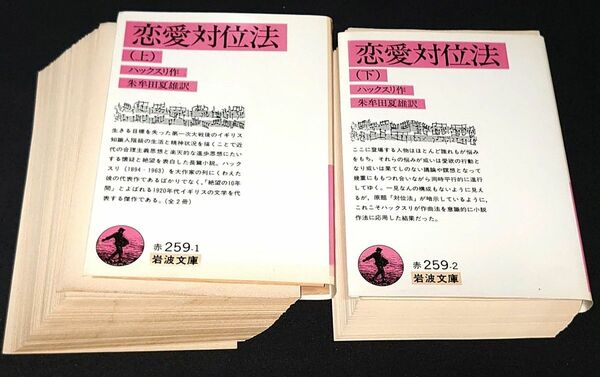 恋愛対位法
（上）
ハックスリ作
朱牟田夏雄訳
生きる目標を失った第一次大戦後のイギリス
知識人階級の生活と精神状況を描くことで近
代の合理主義思想と楽天的な進歩思想にたい
する懐疑と絶望を表白した長篇小説。ハック
スリ（1894‐1963）を大作家の列にくわえた
彼の代表作であるばかりでなく、「絶望の10年
間」とよばれる1920年代イギリスの文学を代
表する傑作である。（全2冊）
赤259-1
岩波文庫
恋愛対位法
（下）
ハックスリ作
朱牟田夏雄訳
ここに登場する人物はほとんど誰れもが悩み
をもち、それらの悩みが或いは愛欲の行動と
なり或いは果てしのない議論や瞑想となって
幾重にももつれ合いながら同時平行的に進行
してゆく。一見なんの構成もないように見え
るが、原題「対位法」が暗示しているように、
これこそハックスリが作曲法を意識的に小説
作法に応用した結果だった。
赤259-2
岩波文庫